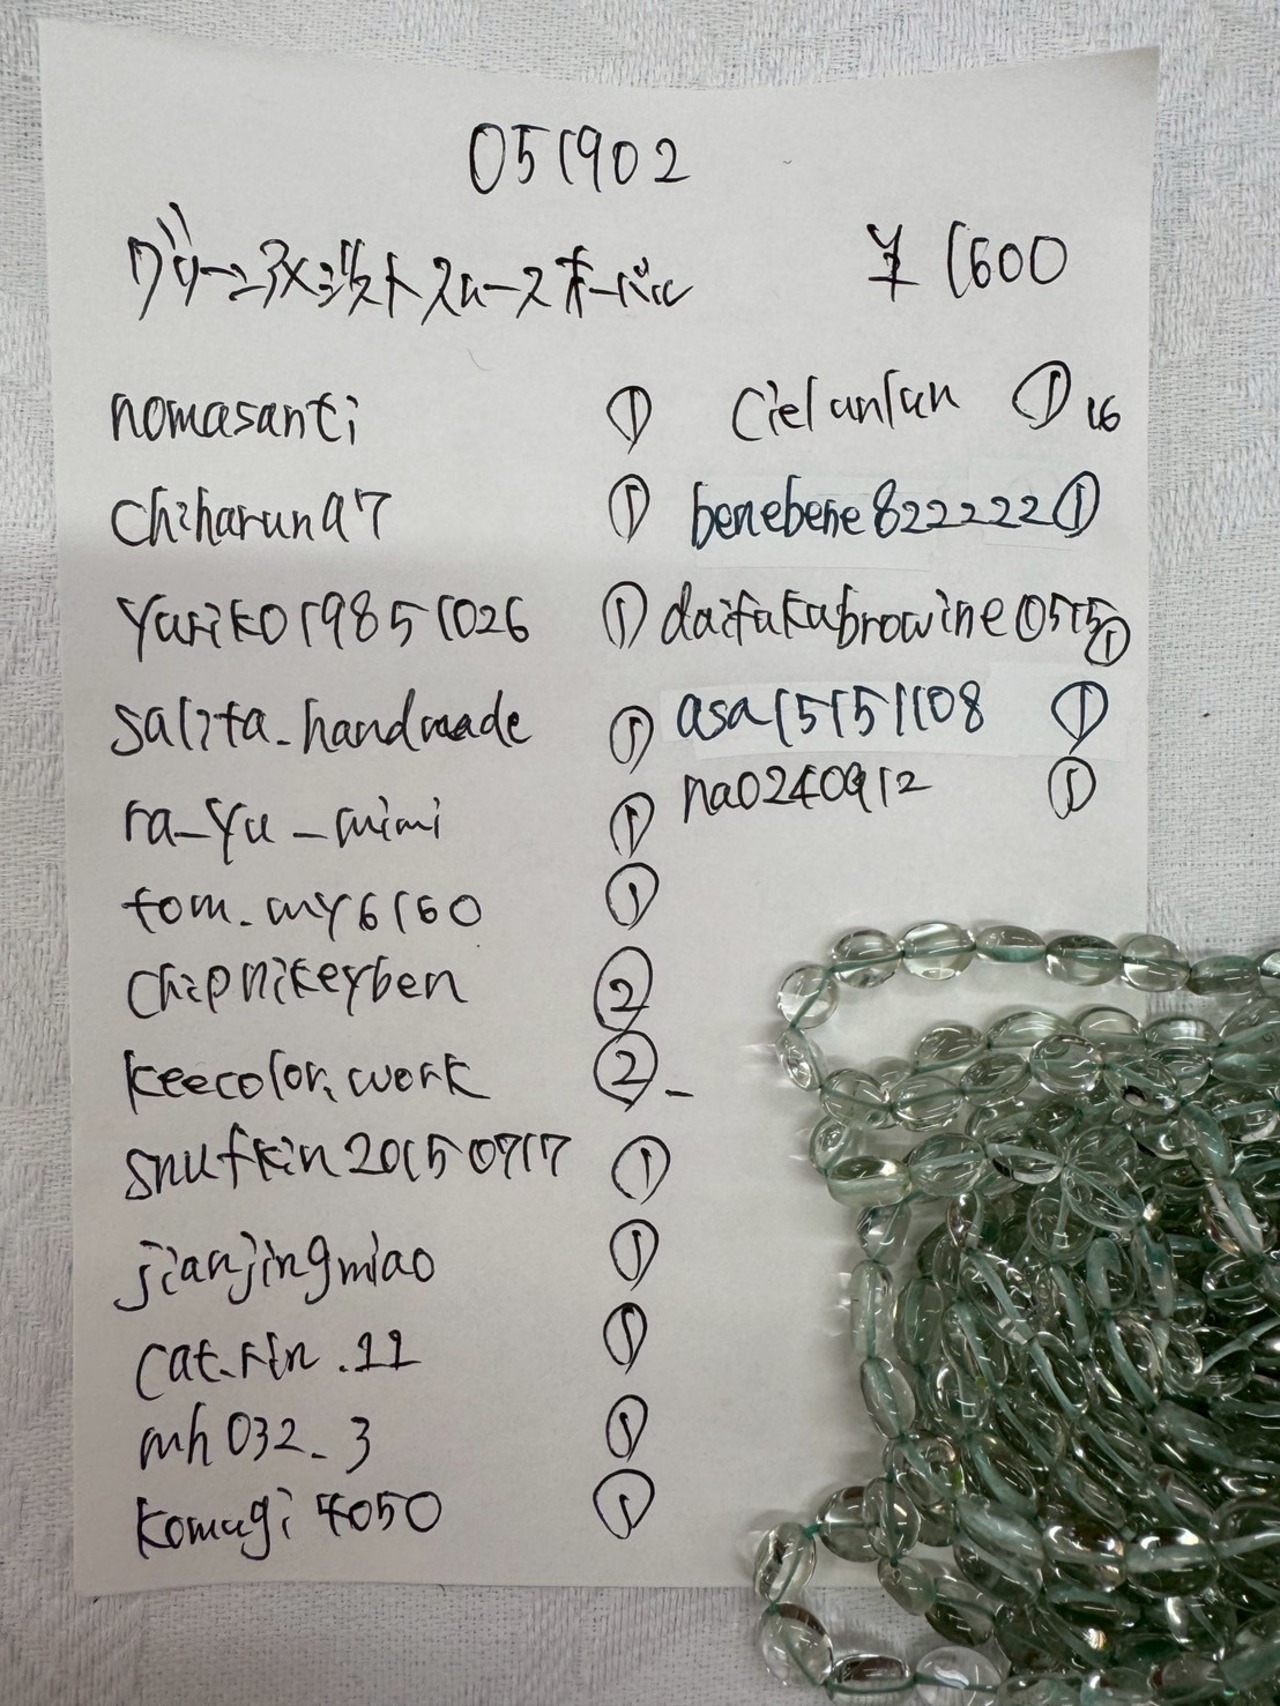 051902
グリーンアメジストスムースオーバル ¥1600
nomasanti ①
chiharun97 ①
yuriko19851026 ①
salita_handmade ①
ra_yu_mimi ①
tom.my6160 ①
chipmikeyben ②
keecolor.work ②-
snufkin20150717 ①
jianjingmiao ①
cat.rin.11 ①
mh032_3 ①
komugi4050 ①
cielunlun ① 16
benebene822222 ①
daifukubrowine0515 ①
asa15151108 ①
na0240912 ①